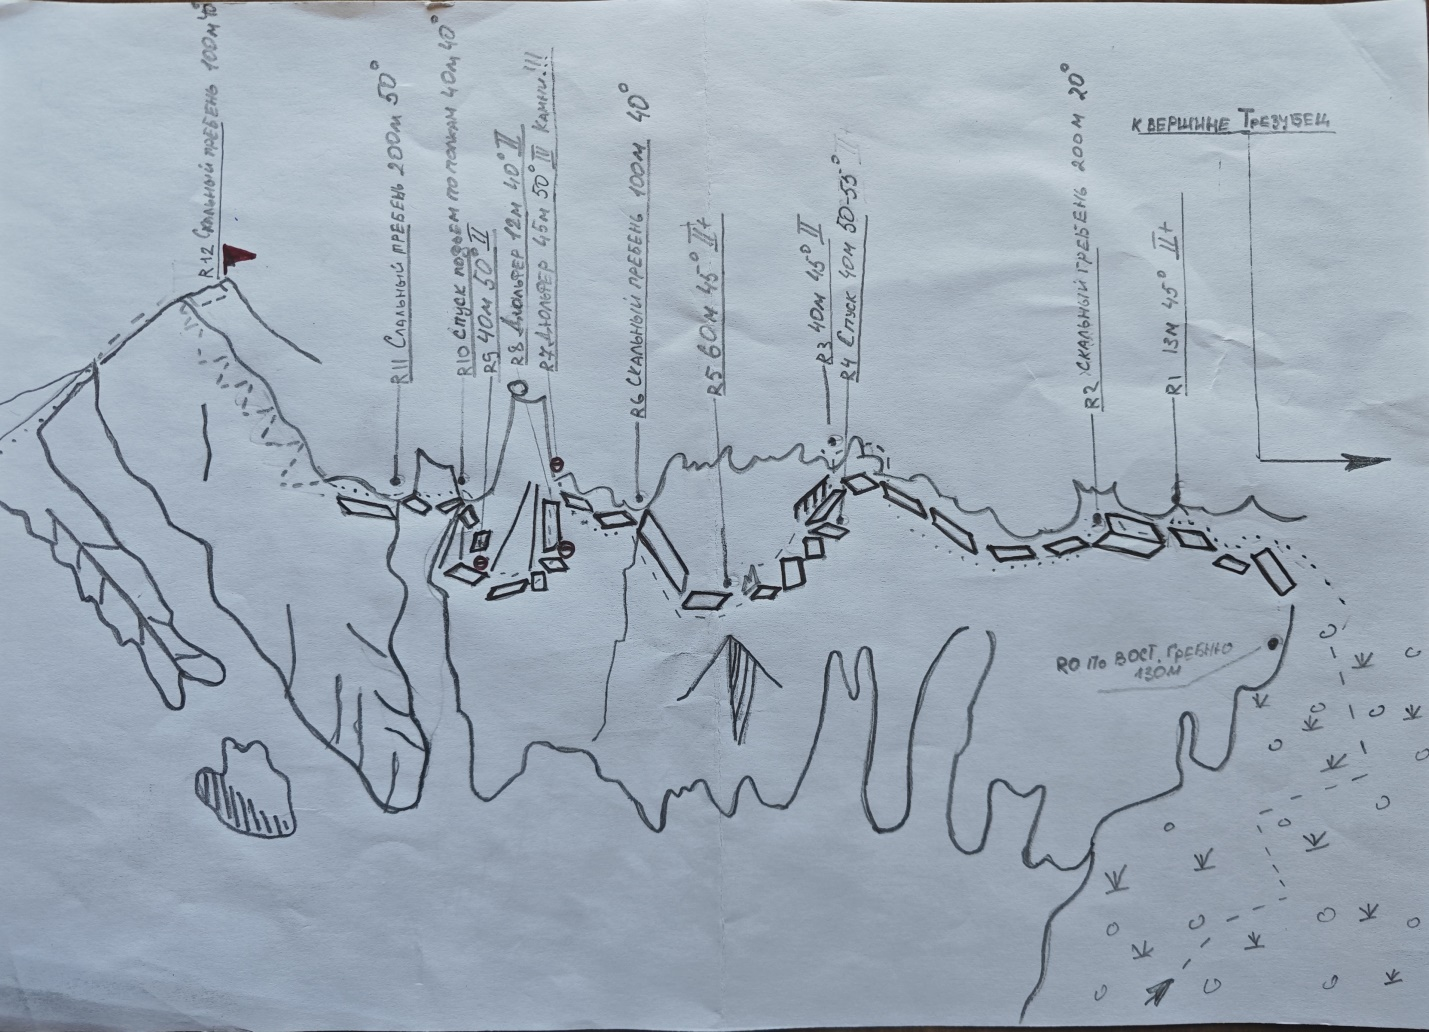 R12 Скальный гребень 100м 40°
R11 Скальный гребень 200м 50°
R10 спуск подъем по полкам 40м 40°
R9 40м 50° II
R8 Дюльфер 12м 40° II
R7 Дюльфер 45м 50° III Камни!!!
R6 Скальный гребень 100м 40°
R5 60м 45° II+
R3 40м 45° II
R4 Спуск 40м 50-55°
R2 Скальный гребень 200м 20°
R1 13м 45° II+
к вершине Трезубец
R0 по вост. гребню
130м